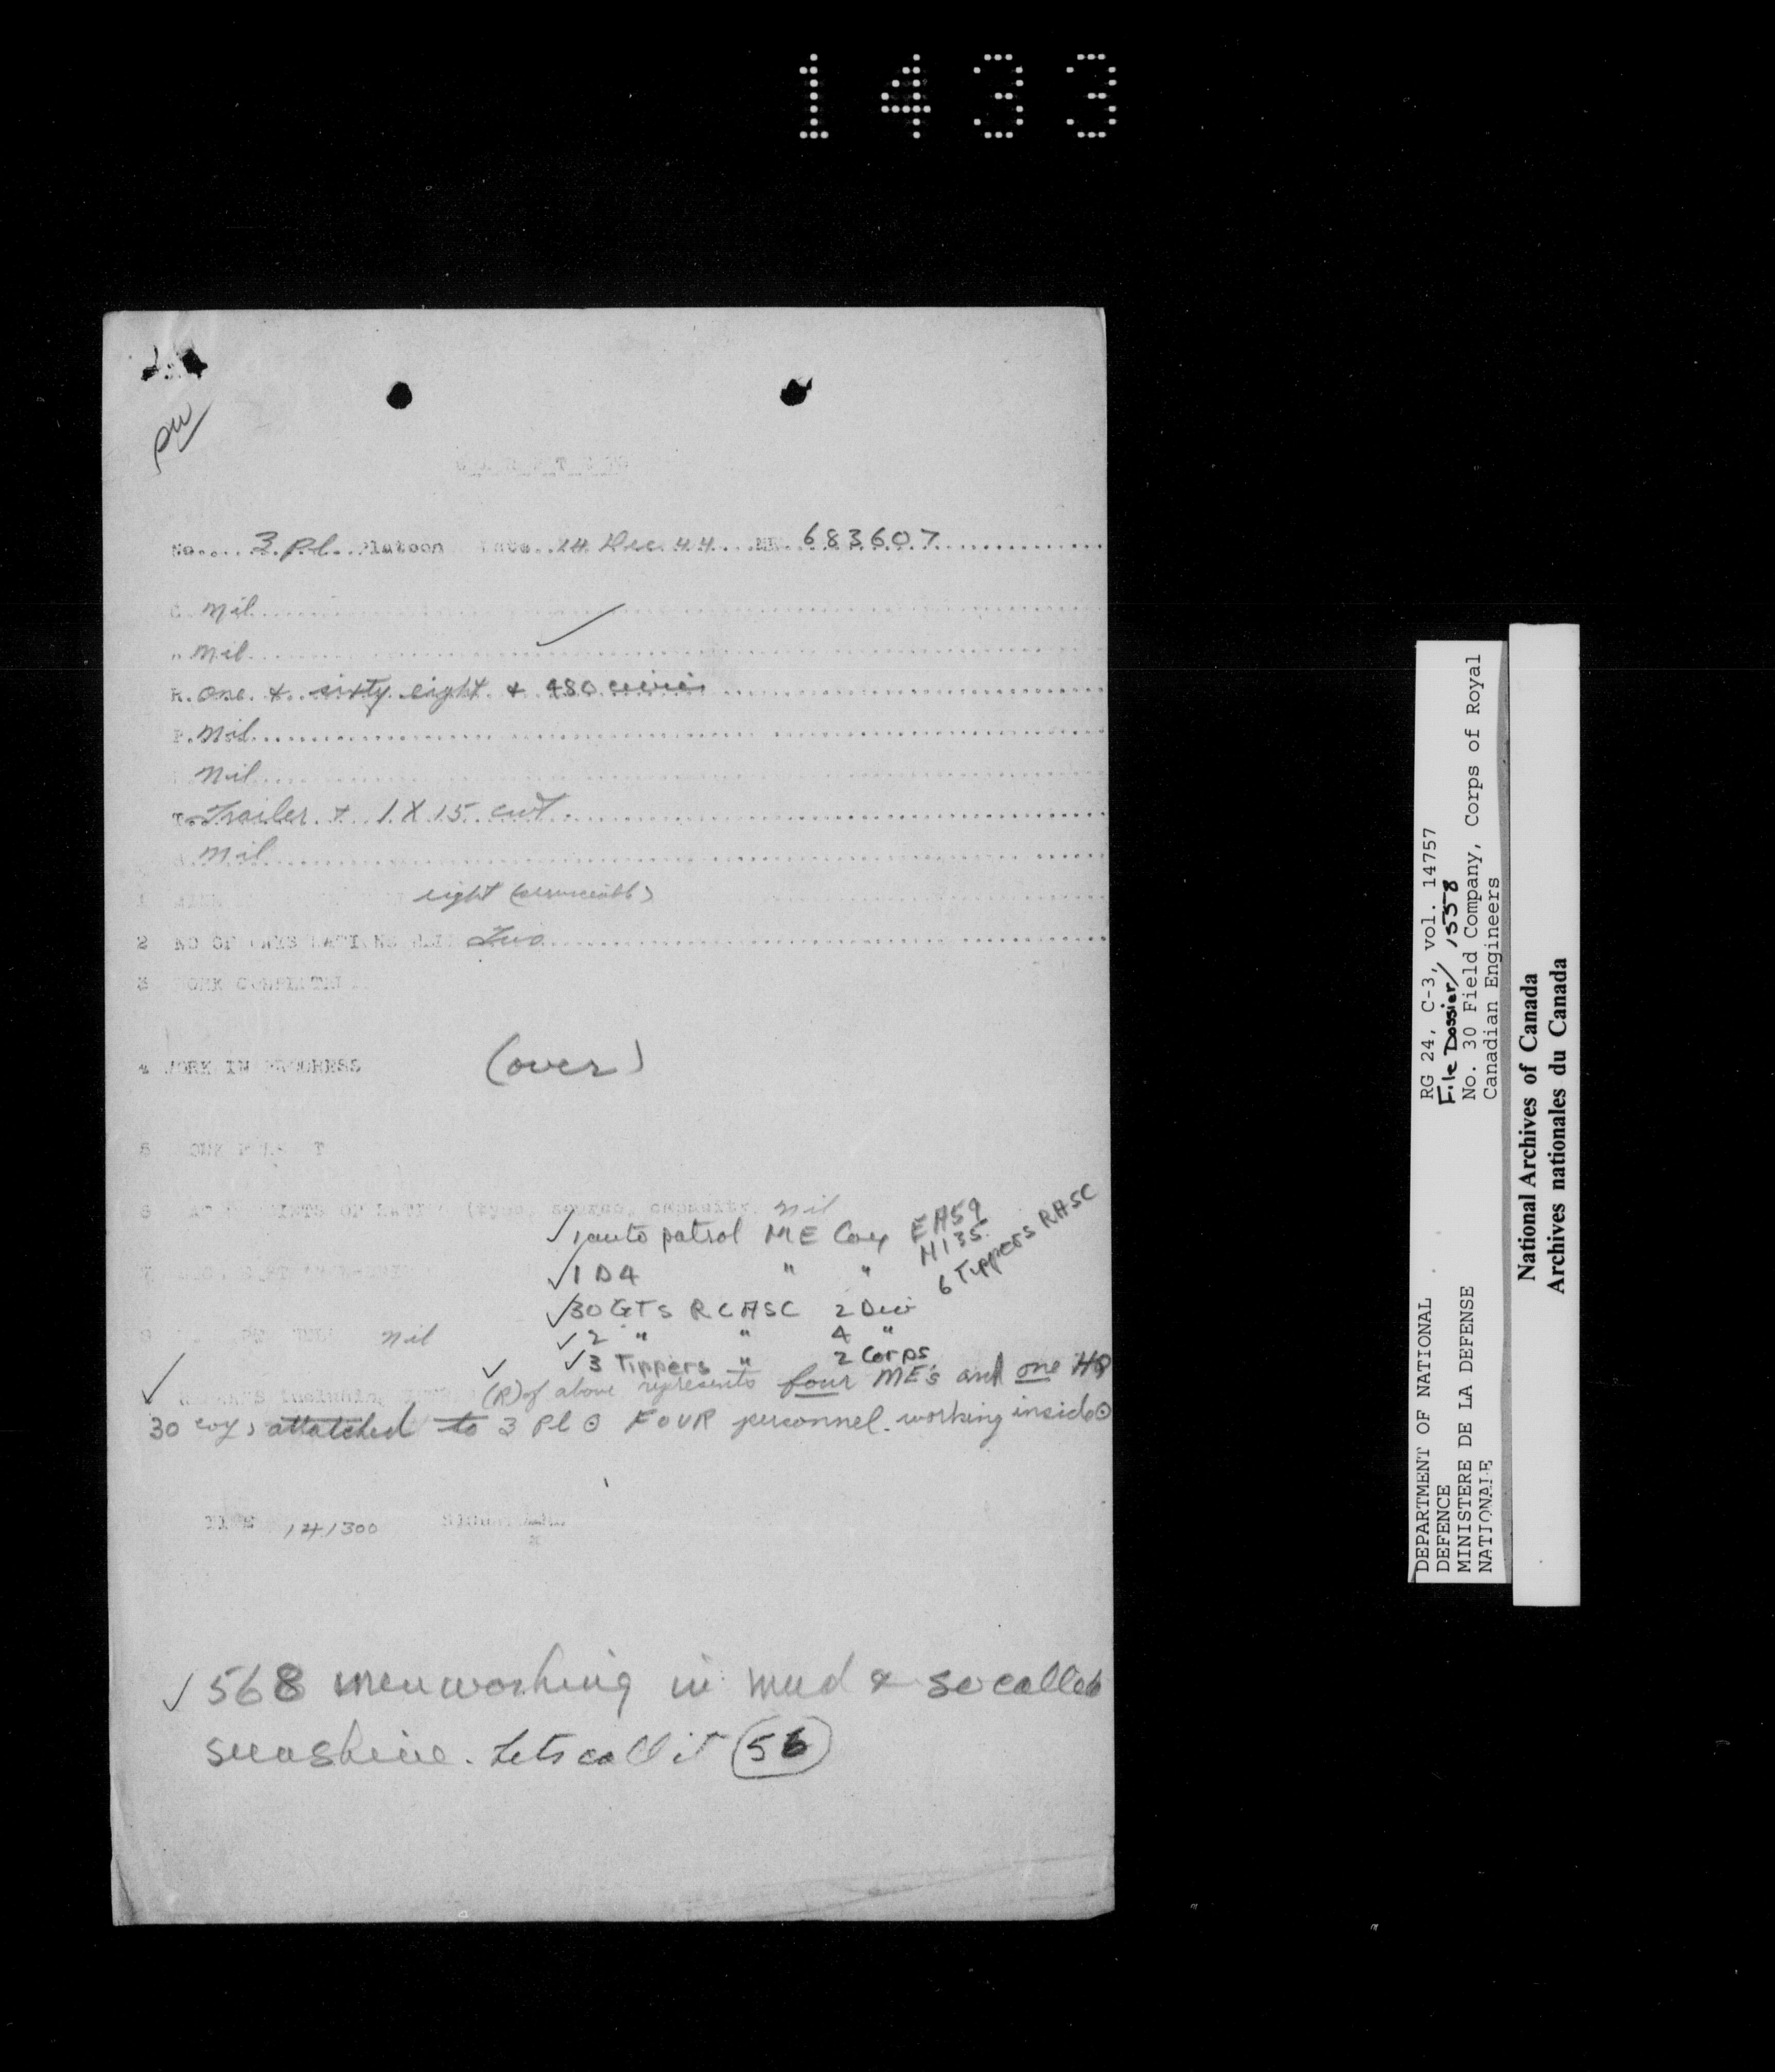 1433
pw
No.... 3 Pl. Platoon Date. 14 Dec 44 ... MR. 683607
C. Nil
" Nil
R. one & sixty eight & 480 civvies
P. Nil
Nil
T. Trailer & 1 X 15 cwt.
Nil
1 eight (serviceable)
2 NO OF Two
3 WORK COMPLETED
4 WORK IN PROGRESS (over)
5
6 (type, source, capacity) nil
✓ 1 auto patrol ME Coy EA59
H135
✓ 1 D4 " " 6 Tippers RASC
✓ 30 GTs RCASC 2 Div
✓ 2 " " 4 "
nil
✓ 3 Tippers " 2 Corps
✓ including ✓ (R) of above represents four ME's and one HQ
30 coy, attatched to 3 Pl ⊙ FOUR personnel working inside ⊙
TIME 141300
✓ 568 men working in mud & so called
sunshine. Lets call it (56)
DEPARTMENT OF NATIONAL
DEFENCE
MINISTERE DE LA DEFENSE
NATIONALE
RG 24, C-3, vol. 14757
File Dossier/ 1558
No. 30 Field Company, Corps of Royal
Canadian Engineers
National Archives of Canada
Archives nationales du Canada